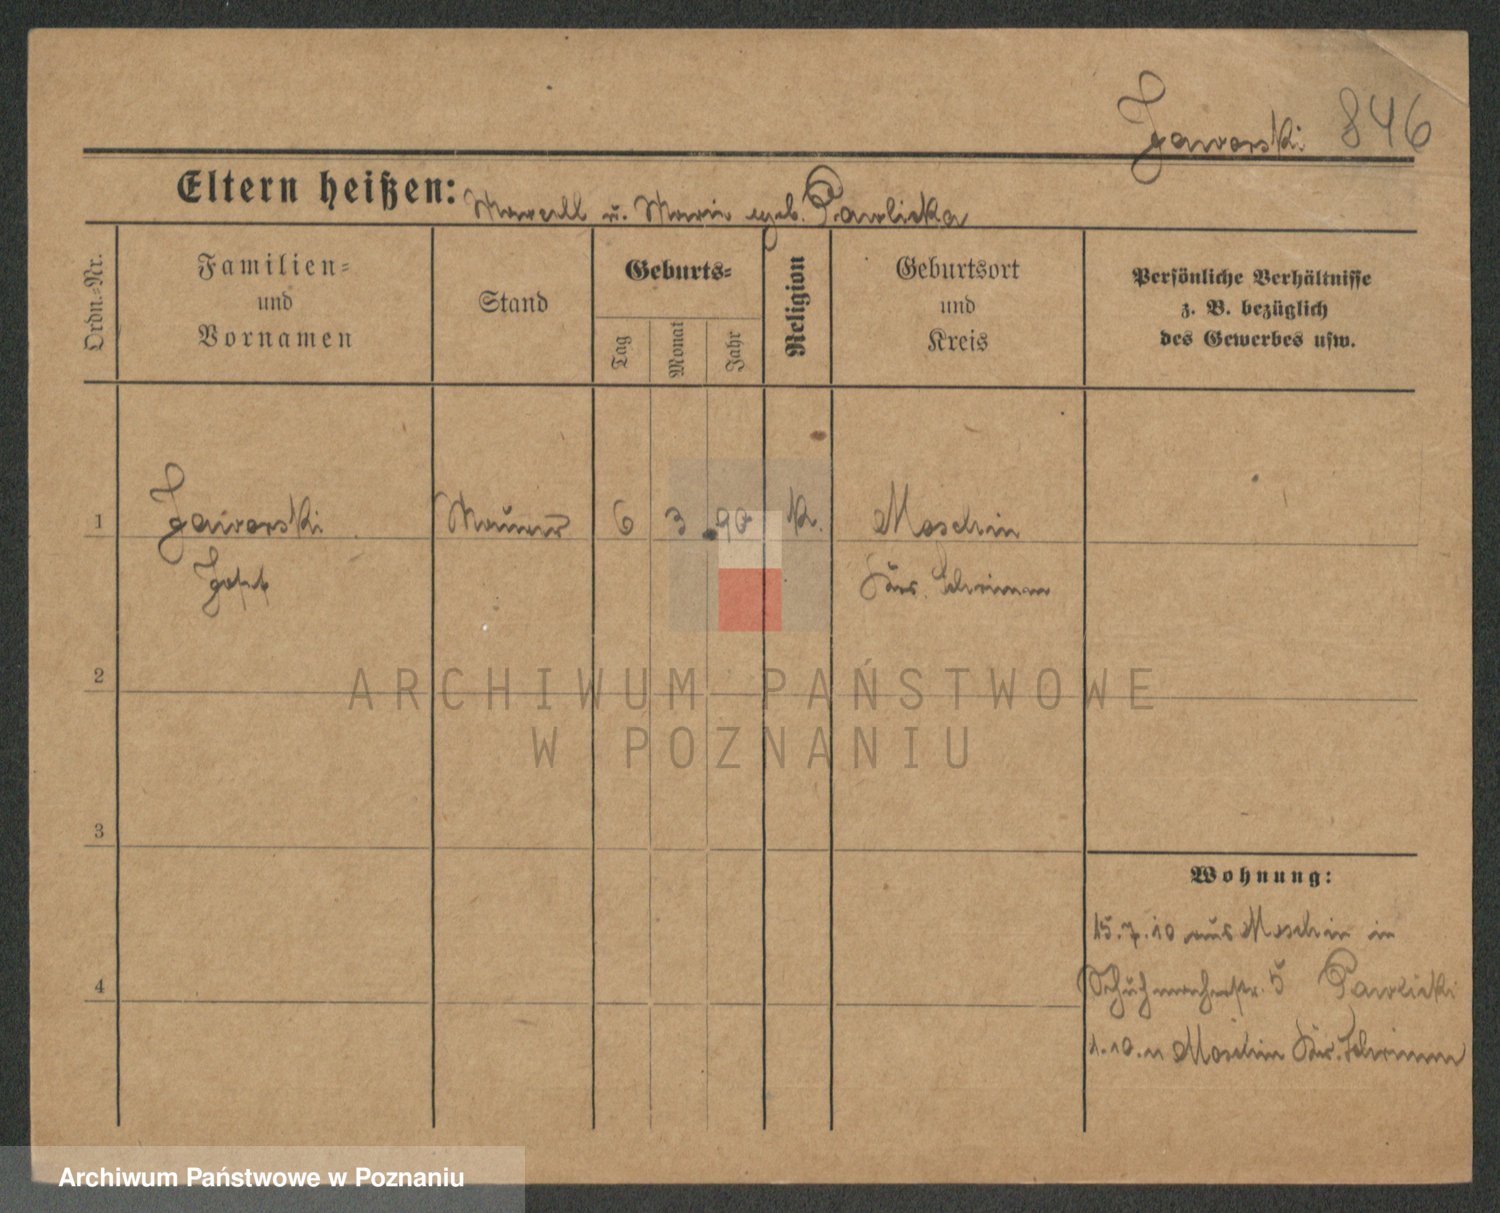 Jaworski 846
Eltern heißen: Marcell u. Maria geb. Pawlicka
Ordn.-Nr.
Familien-
und
Vornamen
Stand
Geburts-
Tag
Monat
Jahr
Religion
Geburtsort
und
Kreis
Persönliche Verhältnisse
z. B. bezüglich
des Gewerbes usw.
1 Jaworski Maurer 6 3. 90 k. Moschin
Josef Krs. Schrimm
2
ARCHIWUM PAŃSTWOWE
W POZNANIU
3
Wohnung:
15.7.10 aus Moschin in
4
Schuhmacherstr. 5 Pawlicki
1.10. n Moschin Krs. Schrimm
Archiwum Państwowe w Poznaniu